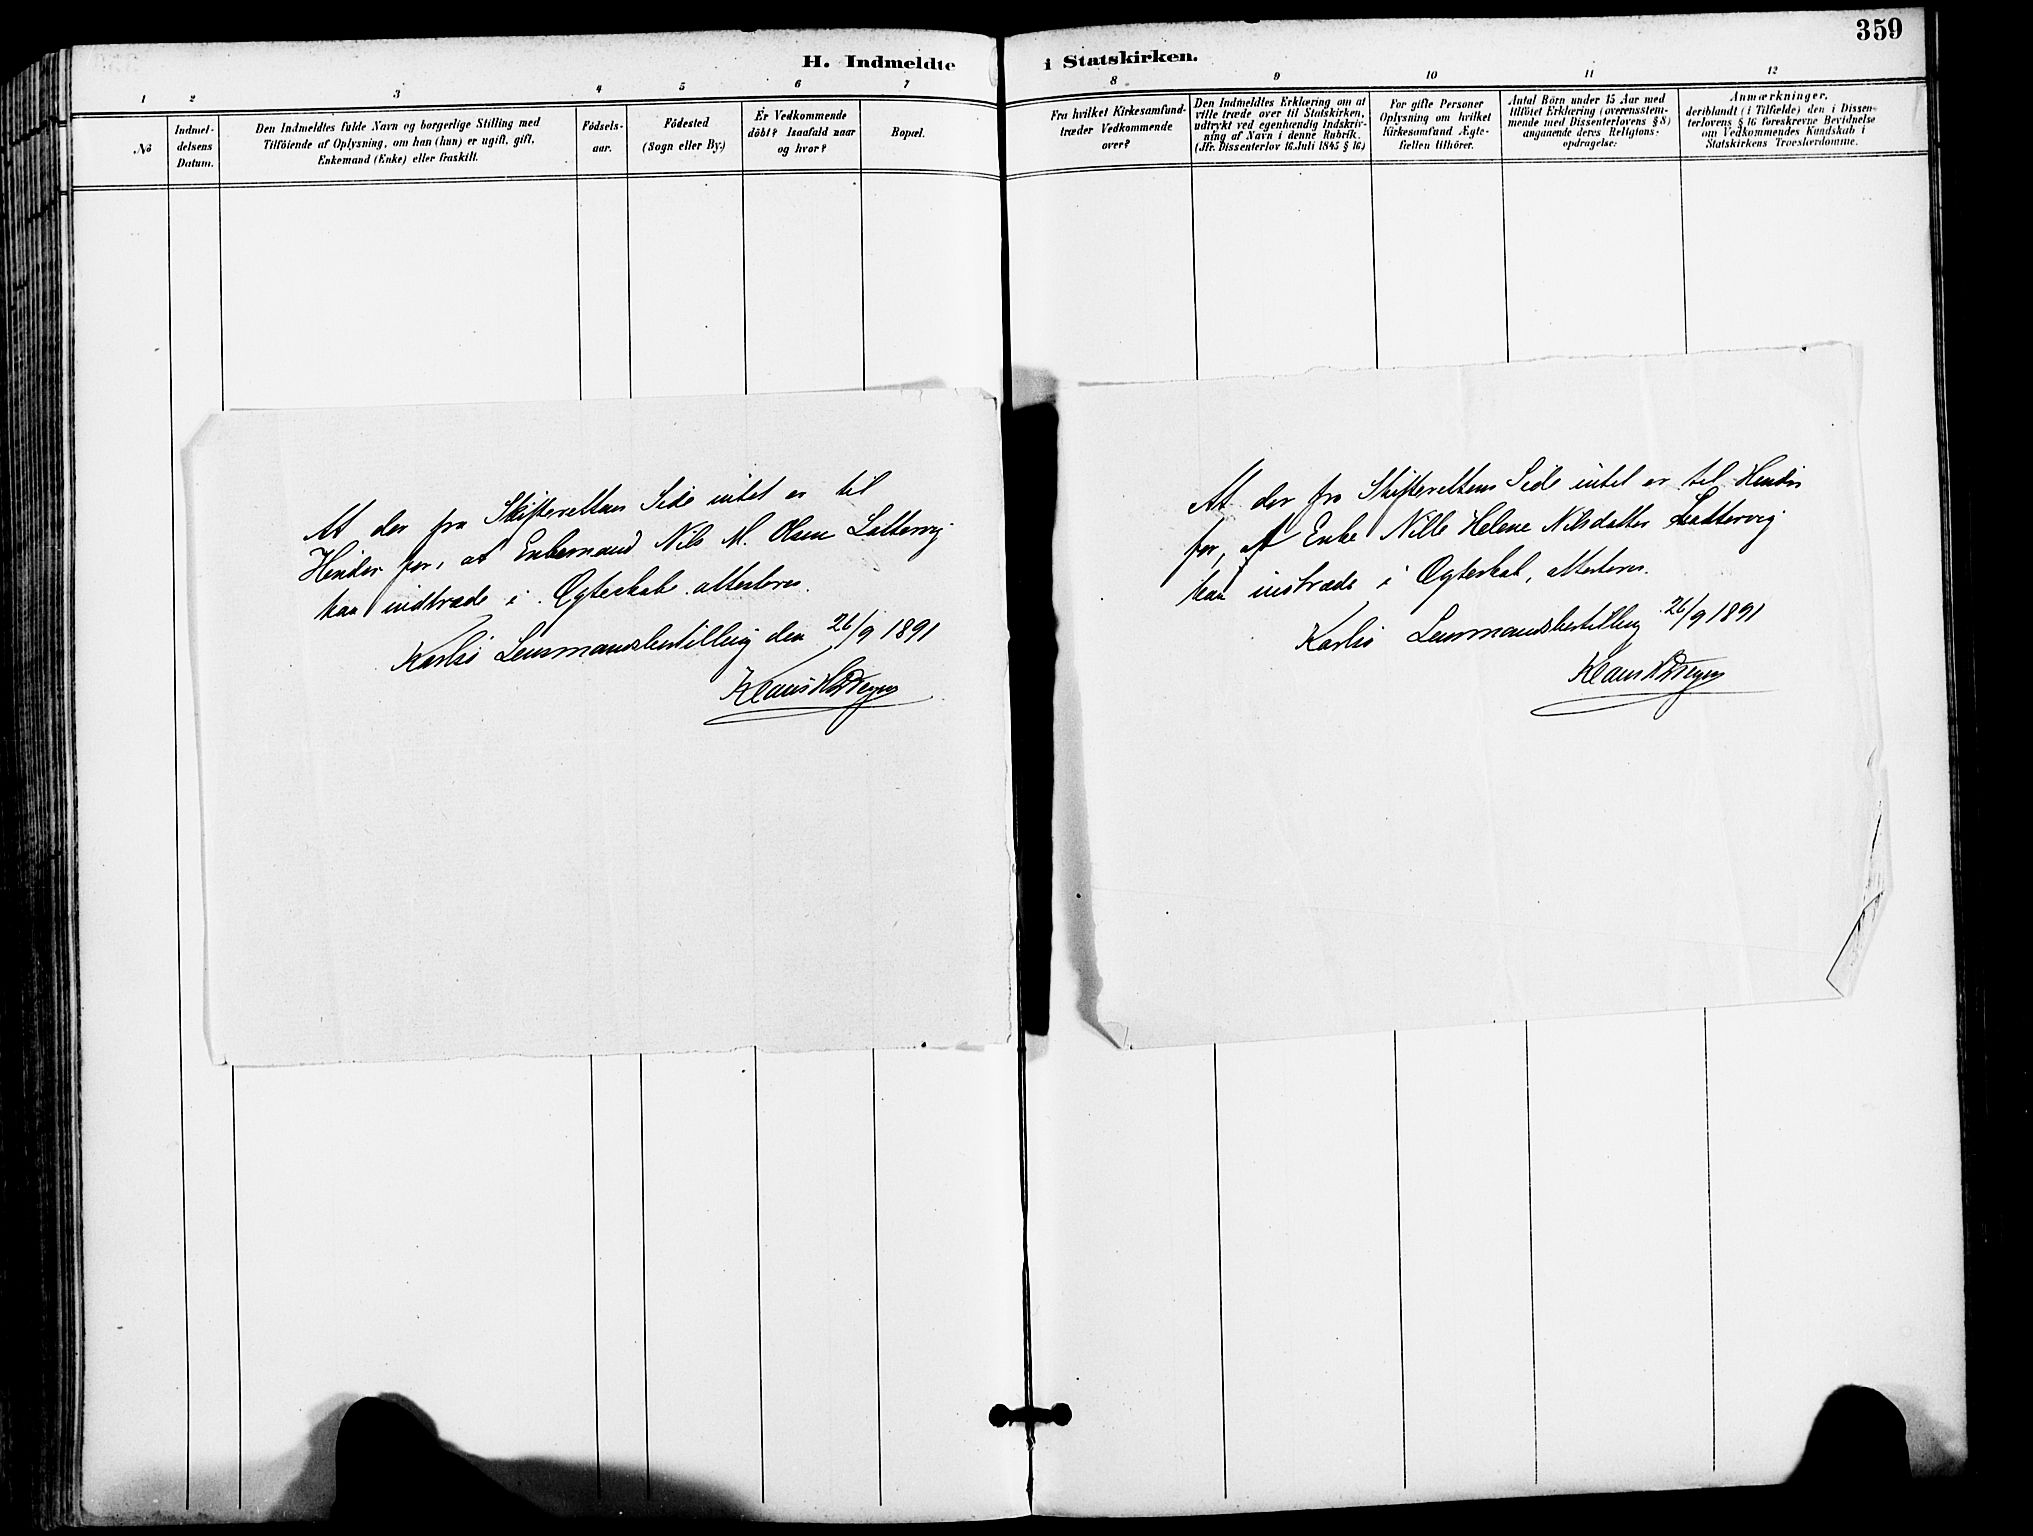 359
H. Indmeldte i Statskirken.
1 2 3 4 5 6 7 8 9 10 11 12
No
Indmel-
delsens
Datum.
Den Indmeldtes fulde Navn og borgerlige Stilling med
Tilföiende af Oplysning, om han (hun) er ugift, gift,
Enkemand (Enke) eller fraskilt.
Födsels-
aar.
Födested
(Sogn eller By.)
Er Vedkommende
döbt? Isaafald naar
og hvor?
Bopæl.
Fra hvilket Kirkesamfund-
træder Vedkommende
over?
Den Indmeldtes Erklæring om at
ville træde over til Statskirken,
udtrykt ved egenhændig Indskriv-
ning af Navn i denne Rubrik.
(Jfr. Dissenterlov 16. Juli 1845 § 16.)
For gifte Personer
Oplysning om hvilket
Kirkesamfund Ægte-
fællen tilhörer.
Antal Börn under 15 Aar med
tilföiet Erklæring (overensstem-
mende med Dissenterlovens § 8)
angaaende deres Religions-
opdragelse:
Anmærkninger,
deriblandt (i Tilfælde) den i Dissen-
terlovens § 16 foreskrevne Bevidnelse
om Vedkommendes Kundskab i
Statskirkens Troeslærdomme.
At der fra Skifterettens Side intet er til
Hinder for, at Enkemand Nils M. Olsen Lattervig
kan indtræde i Ægteskab attesteres.
Karlsö Lensmandsbestilling den 26/9 1891
Klaus
At der fra Skifterettens Side intet er til Hinder
for, at Enke Nille Helene Nilsdatter Lattervig
kan indtræde i Ægteskab, attesteres.
Karlsö Lensmandsbestilling 26/9 1891
Klaus